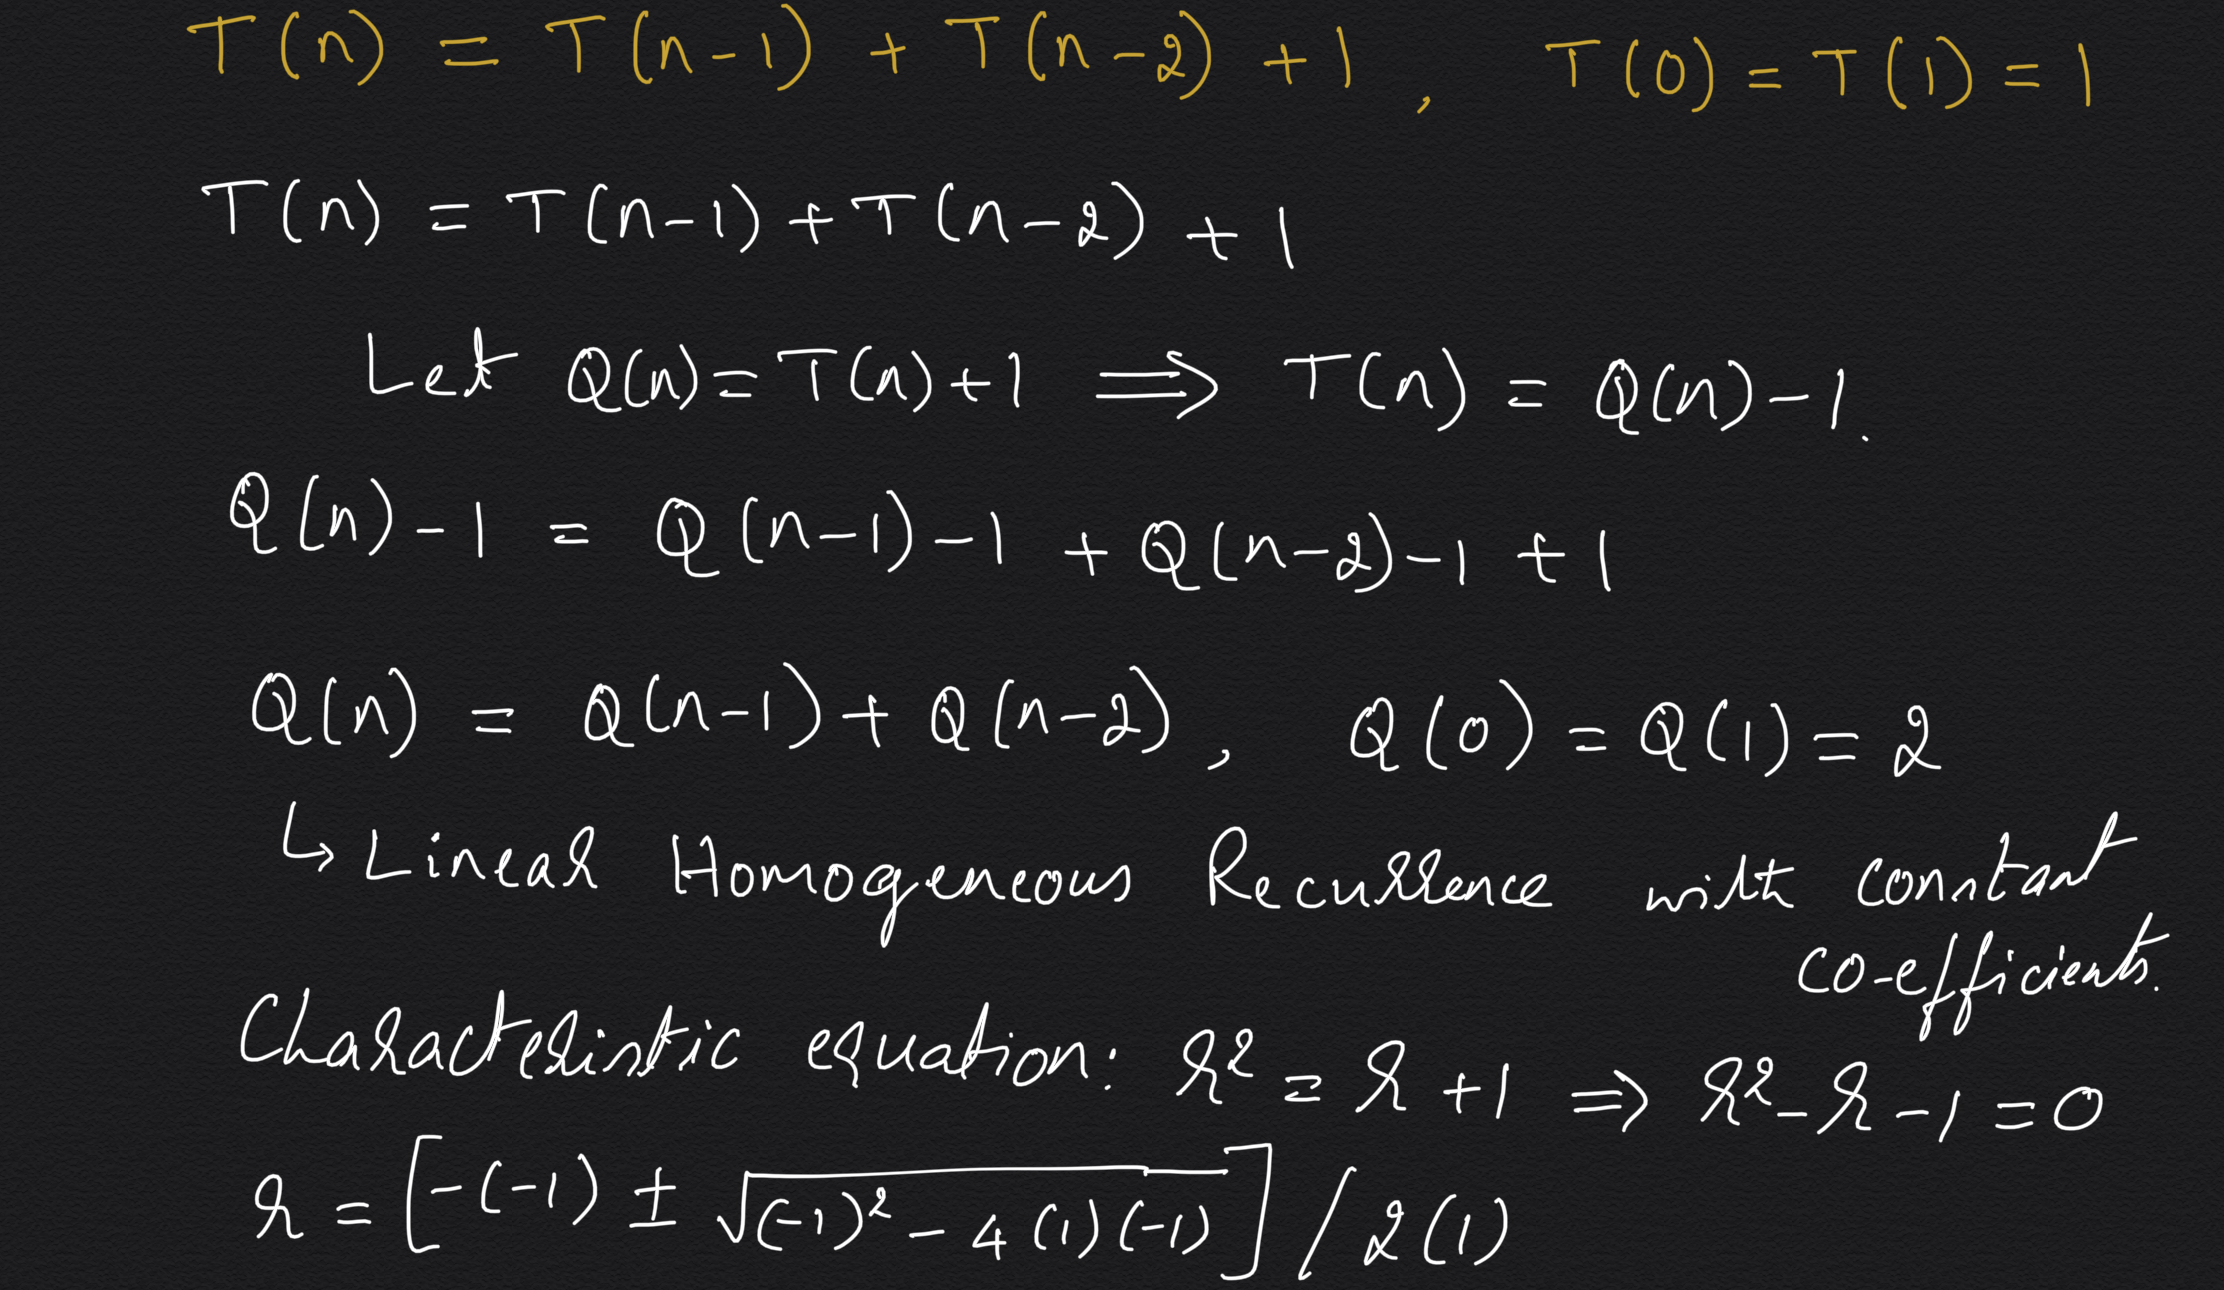 T(n) = T(n-1) + T(n-2) + 1, T(0) = T(1) = 1
T(n) = T(n-1) + T(n-2) + 1
Let Q(n) = T(n) + 1 ⟹ T(n) = Q(n) - 1.
Q(n) - 1 = Q(n-1) - 1 + Q(n-2) - 1 + 1
Q(n) = Q(n-1) + Q(n-2), Q(0) = Q(1) = 2
↳ Linear Homogeneous Recurrence with constant
co-efficients.
Characteristic equation: r² = r + 1 ⟹ r² - r - 1 = 0
r = [-(-1) ± √((-1)² - 4(1)(-1))] / 2(1)